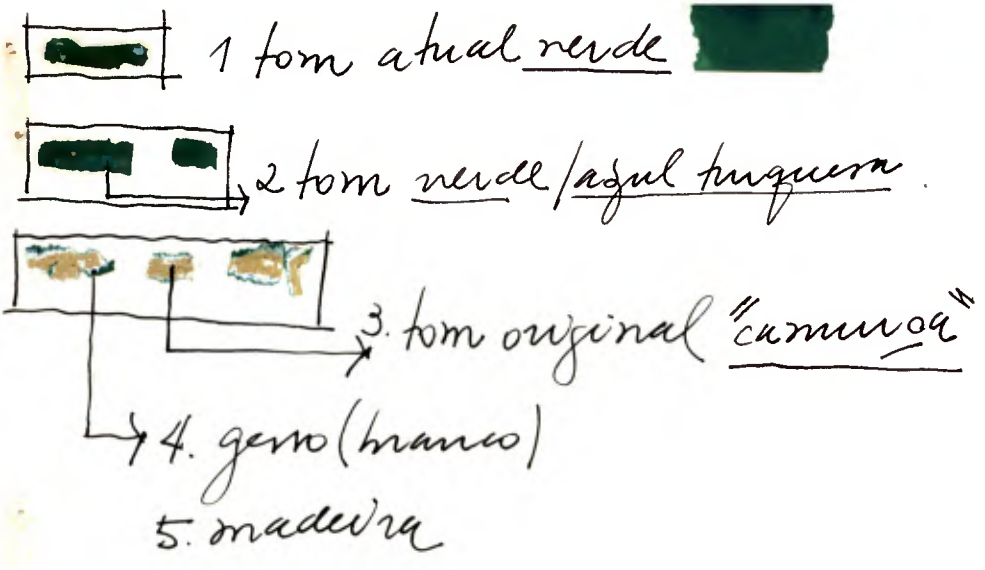 1 tom atual verde
2 tom verde/azul turquesa.
3. tom original "camurça"
4. gesso (branco)
5. madeira